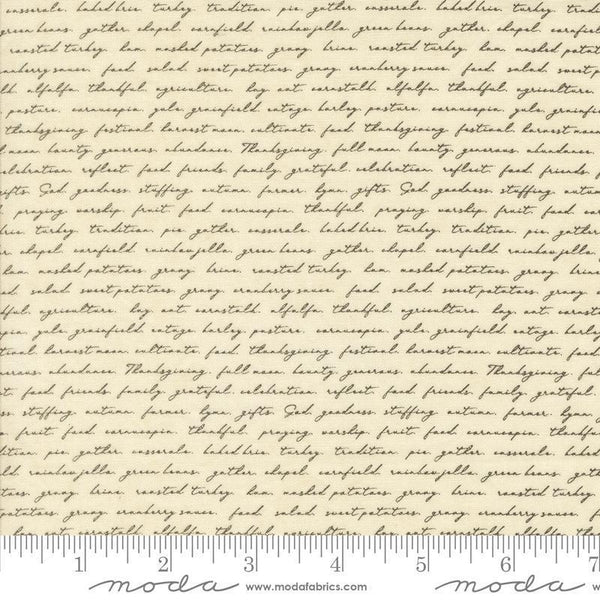 casserole. baked brie. turkey. tradition. pie. gather. casserole. baked brie. turkey. tradi
green beans. gather. chapel. cornfield. rainbow jello. green beans. gather. chapel. cornfiel
roasted turkey. ham. mashed potatoes. gravy. brine. roasted turkey. ham. mashed potat
cranberry sauce. food. salad. sweet potatoes. gravy. cranberry sauce. food. salad. sweet p
lk. alfalfa. thankful. agriculture. hay. oat. cornstalk. alfalfa. thankful. agriculture.
pasture. cornucopia. yule. grainfield. cutage. barley. pasture. cornucopia. yule. grainfi
thanksgiving. festival. harvest moon. cultivate. food. thanksgiving. festival. harvest moon
l moon. bounty. generous. abundance. Thanksgiving. full moon. bounty. generous. abundance.
celebration. reflect. food. friends. family. grateful. celebration. reflect. food. friends.
gifts. God. goodness. stuffing. autumn. farmer. hymn. gifts. God. goodness. stuffing. autum
l. praying. worship. fruit. food. cornucopia. thankful. praying. worship. fruit. food. cor
brie. turkey. tradition. pie. gather. casserole. baked brie. turkey. tradition. pie. gather
r. chapel. cornfield. rainbow jello. green beans. gather. chapel. cornfield. rainbow jello.
ham. mashed potatoes. gravy. brine. roasted turkey. ham. mashed potatoes. gravy. brine
d. salad. sweet potatoes. gravy. cranberry sauce. food. salad. sweet potatoes. gravy.
ful. agriculture. hay. oat. cornstalk. alfalfa. thankful. agriculture. hay. oat. cornsta
pia. yule. grainfield. cutage. barley. pasture. cornucopia. yule. grainfield. cutage. barley
tival. harvest moon. cultivate. food. thanksgiving. festival. harvest moon. cultivate. food
nerous. abundance. Thanksgiving. full moon. bounty. generous. abundance. Thanksgiving. ful
t. food. friends. family. grateful. celebration. reflect. food. friends. family. grateful.
ss. stuffing. autumn. farmer. hymn. gifts. God. goodness. stuffing. autumn. farmer. hymn
p. fruit. food. cornucopia. thankful. praying. worship. fruit. food. cornucopia. thankfu
dition. pie. gather. casserole. baked brie. turkey. tradition. pie. gather. casserole. baked
ld. rainbow jello. green beans. gather. chapel. cornfield. rainbow jello. green beans. gath
toes. gravy. brine. roasted turkey. ham. mashed potatoes. gravy. brine. roasted turkey.
potatoes. gravy. cranberry sauce. food. salad. sweet potatoes. gravy. cranberry sauce. f
hay. oat. cornstalk. alfalfa. thankful. agriculture. hay. oat. cornstalk. alfalfa. thank
1 2 3 4 5 6 7
moda www.modafabrics.com moda www.modafabrics.com